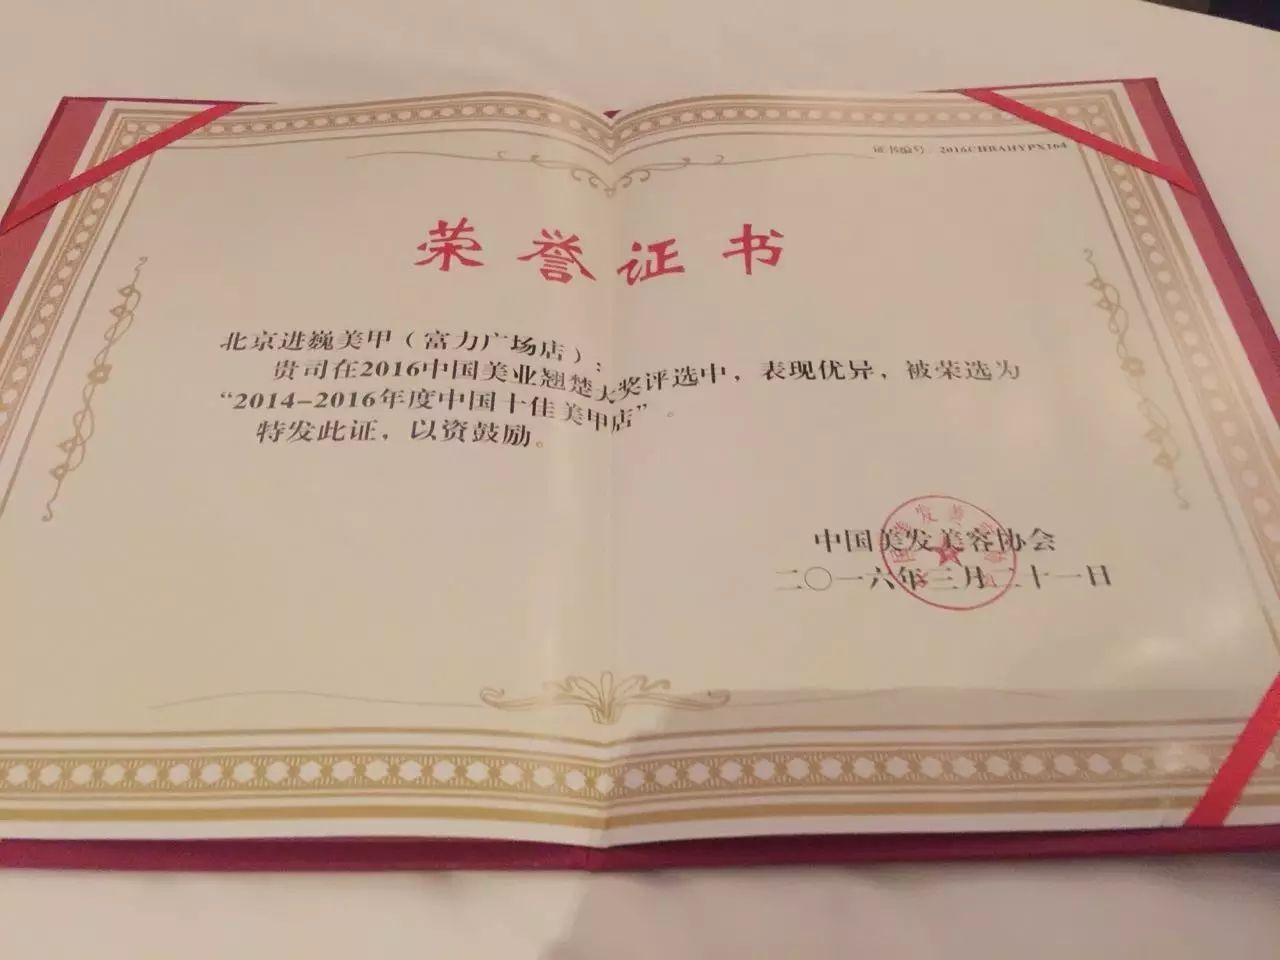 证书编号：2016CHBAHYPX164
荣誉证书
北京进巍美甲（富力广场店）：
贵司在2016中国美业翘楚大奖评选中，表现优异，被荣选为
“2014-2016年度中国十佳美甲店”。
特发此证，以资鼓励。
中国美发美容协会
二〇一六年三月二十一日